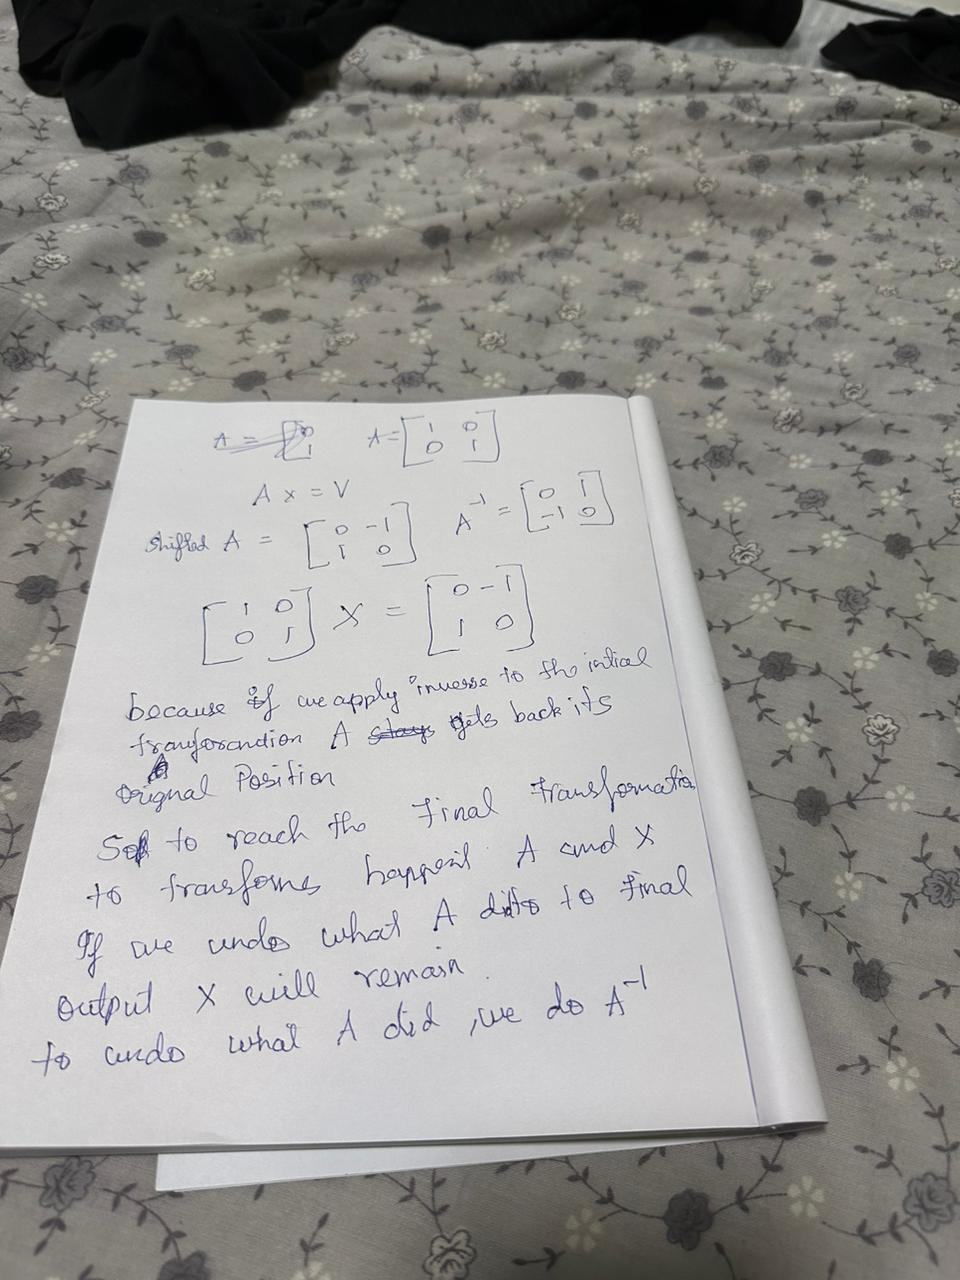 A = [0 1] A = [1 0 0 1]
A x = V
shifted A = [0 -1 1 0] A⁻¹ = [0 1 -1 0]
[1 0 0 1] X = [0 -1 1 0]
because if we apply inverse to the intical
A stays gets back its
orignal Position
to reach the final transformatio
to transforms A and X
If we undo what A to final
output X will remain.
to undo what A did, we do A⁻¹